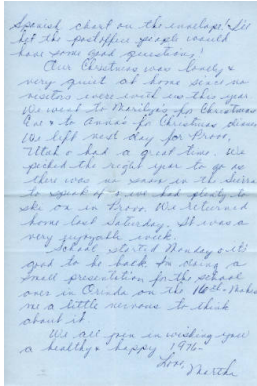 Spanish chart on the envelope! I'll
bet the postoffice people would
have some good questions!
Our Christmas was lovely &
very quiet at home since no
visitors were with us this year
We went to Marilyn's for Christmas
Eve & to Anna's for Christmas dinner
We left next day for Provo,
Utah & had a great time. We
picked the right year to go as
there was no snow in the Sierra
to speak of & we had plenty to
ski on in Provo. We returned
home last Saturday. It was a
very enjoyable week.
School started Monday & it's
good to be back. I'm doing a
small presentation for the school
ones in Orinda on the 16th. Makes
me a little nervous to think
about it.
We all join in wishing you
a healthy & happy 1976-
Love,
Martha